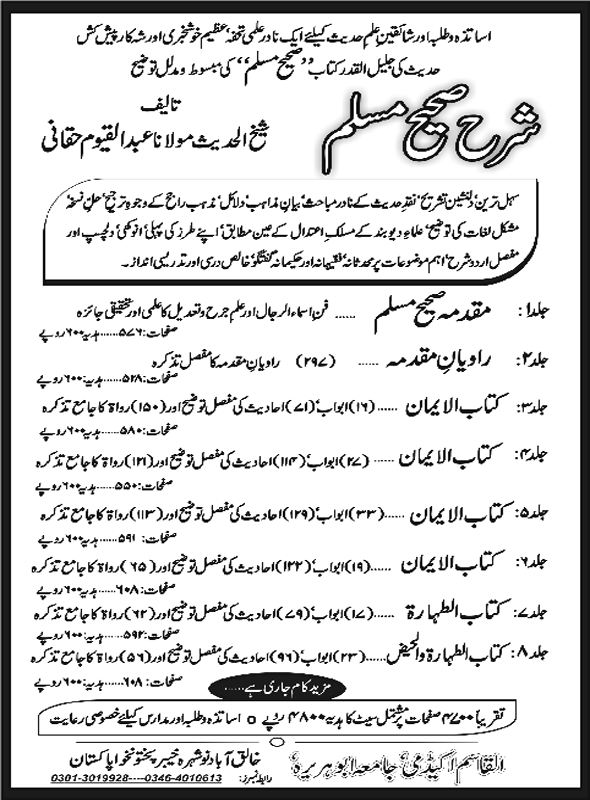 اساتذہ و طلبہ اور شائقینِ علمِ حدیث کیلئے ایک نادر علمی تحفہ عظیم خوشخبری اور شہ کار پیش کش
حدیث کی جلیل القدر کتاب ’’صحیح مسلم‘‘ کی مبسوط و مدلل توضیح
شرح صحیح مسلم
تالیف
شیخ الحدیث مولانا عبدالقیوم حقانی
سہل ترین‘ دلنشین تشریح‘ نقدِ حدیث کے نادر مباحث‘ بیانِ مذاہب‘ دلائل‘ مذہب راجح کے وجوہِ ترجیح‘ حلِ نسخہ‘
مشکل لغات کی توضیح‘ علماءِ دیوبند کے مسلکِ اعتدال کے عین مطابق‘ اپنے طرز کی پہلی‘ انوکھی‘ دلچسپ اور
مفصل اردو شرح‘ اہم موضوعات پر محدثانہ‘ فقیہانہ اور حکیمانہ گفتگو‘ خالص درسی اور تدریسی انداز۔
جلد۱: مقدمہ صحیح مسلم ...... فنِ اسماء الرجال اور علمِ جرح و تعدیل کا علمی اور تحقیقی جائزہ
صفحات: ۵۷۶......ہدیہ ۶۰۰ روپے
جلد۲: راویانِ مقدمہ ...... (۲۹۷) راویانِ مقدمہ کا مفصل تذکرہ
صفحات: ۵۲۸......ہدیہ: ۶۰۰ روپے
جلد۳: کتاب الایمان ......(۱۶) ابواب‘ (۷۱) احادیث کی مفصل توضیح اور (۱۵۰) رواۃ کا جامع تذکرہ
صفحات: ۵۸۰......ہدیہ: ۶۰۰ روپے
جلد۴: کتاب الایمان ......(۲۷) ابواب‘ (۱۱۴) احادیث کی مفصل توضیح اور (۱۲۱) رواۃ کا جامع تذکرہ
صفحات: ۵۵۰......ہدیہ ۶۰۰ روپے
جلد۵: کتاب الایمان ......(۳۳) ابواب‘ (۱۲۹) احادیث کی مفصل توضیح اور (۱۱۳) رواۃ کا جامع تذکرہ
صفحات: ۵۹۱......ہدیہ ۶۰۰ روپے
جلد۶: کتاب الایمان ......(۱۹) ابواب‘ (۱۲۲) احادیث کی مفصل توضیح اور (۶۵) رواۃ کا جامع تذکرہ
صفحات: ۶۰۸......ہدیہ ۶۰۰ روپے
جلد۷: کتاب الطہارۃ ......(۱۷) ابواب‘ (۷۹) احادیث کی مفصل توضیح اور (۶۲) رواۃ کا جامع تذکرہ
صفحات: ۵۹۲......ہدیہ: ۶۰۰ روپے
جلد۸: کتاب الطہارۃ والحیض......(۲۳) ابواب‘ (۹۶) احادیث کی مفصل توضیح اور (۵۶) رواۃ کا جامع تذکرہ
صفحات: ۶۰۸......ہدیہ ۶۰۰ روپے
مزید کام جاری ہے......
تقریباً ۴۷۰۰ صفحات پر مشتمل سیٹ کا ہدیہ ۴۸۰۰ روپے ○ اساتذہ و طلبہ اور مدارس کیلئے خصوصی رعایت
القاسم اکیڈمی‘ جامعہ ابوہریرہ‘ خالق آباد نوشہرہ خیبر پختونخوا پاکستان
رابطہ نمبرز: 0301-3019928----0346-4010613